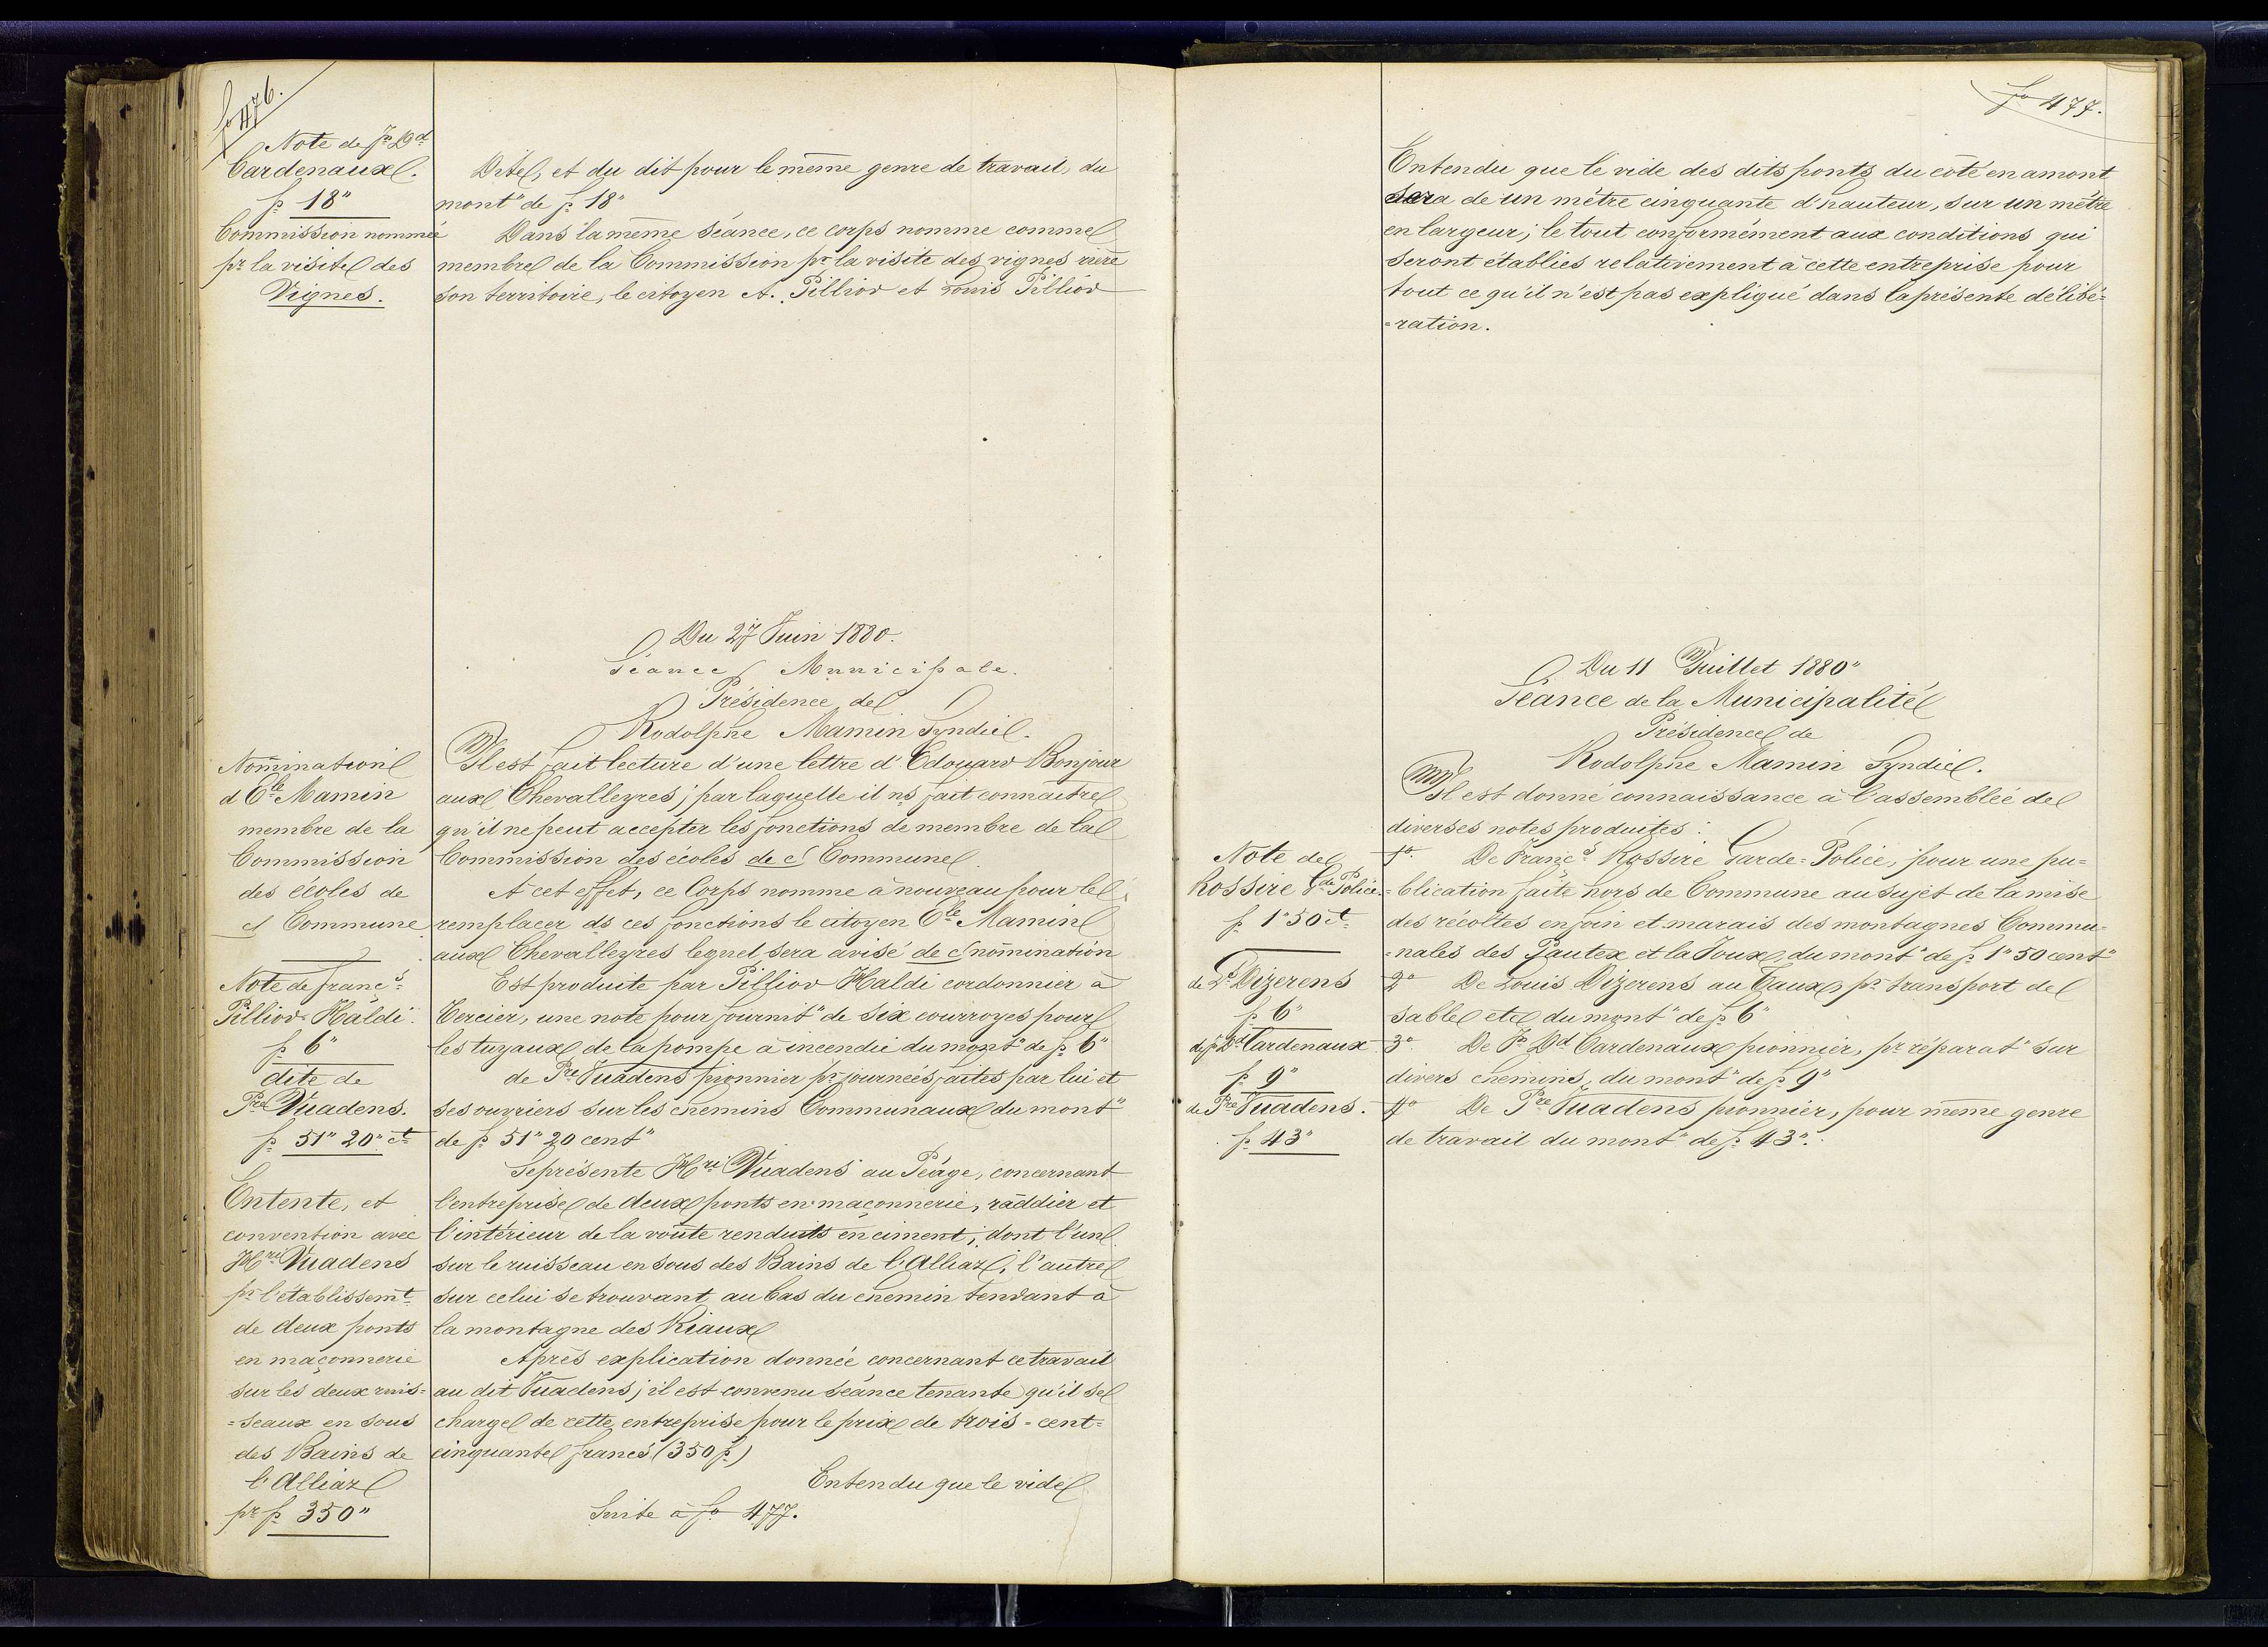 fo 476.
Note de Jn Dd
Cardenaux.
fr 18"
Commission nommée
pr la visite des
Vignes.
Dite, et du dit pour le même genre de travail, du
mont" de fr. 18"
Dans la même séance, ce corps nomme comme
membre de la Commission pr la visite des vignes rière
son territoire, le citoyen A. Pilliod et Louis Pilliod
Du 27 Juin 1880.
Séance Municipale.
Présidence de
Rodolphe Mamin Syndic.
Nomination
d' Ele Mamin
membre de la
Commission
des écoles de
ct Commune
Il est fait lecture d'une lettre d'Edouard Bonjour
aux Chevalleyres; par laquelle il ns fait connaitre
qu'il ne peut accepter les fonctions de membre de la
Commission des écoles de ct Commune
A cet effet, ce Corps nomme à nouveau pour le
remplacer ds ces fonctions le citoyen Ele Mamin
aux Chevalleyres lequel sera avisé de ct nomination
Note de Francs
Pilliod-Haldi.
fr 6"
dite de
Pre Vuadens.
fr 51" 20" ct
Est produite par Pilliod Haldi cordonnier à
Tercier, une note pour fournit" de six courroyes pour
les tuyaux de la pompe à incendie du mont" de fr. 6"
de Pre Vuadens pionnier pr journées faites par lui et
ses ouvriers sur les chemins Communaux du mont"
de fr 51" 20 cent"
Entente, et
convention avec
Hri Vuadens
pr l'établissemt
de deux ponts
en maçonnerie
sur les deux ruis=
=seaux en sous
des Bains de
l'Alliaz
pr fr 350"
Se présente Hri Vuadens au Péage, concernant
l'entreprise de deux ponts en maçonnerie, raddier et
l'intérieur de la voûte renduits en ciment; dont l'un
sur le ruisseau en sous des Bains de l'Alliaz; l'autre
sur celui se trouvant au bas du chemin tendant à
la montagne des Riaux
Après explication donnée concernant ce travail
au dit Vuadens; il est convenu séance tenante qu'il se
charge de cette entreprise pour le prix de trois=cent=
cinquante francs (350 fr)
Entendu que le vide
Suite à fo 477.
fo 477.
Entendu que le vide des dits ponts du côté en amont
sera de un mètre cinquante d'hauteur, sur un mètre
en largeur; le tout conformément aux conditions qui
seront établies relativement à cette entreprise pour
tout ce qu'il n'est pas expliqué dans la présente délibé=
=ration.
Du 11 Juillet 1880"
Séance de la Municipalité
Présidence de
Rodolphe Mamin Syndic.
Il est donné connaissance à l'assemblée de
diverses notes produites:
Note de
Rossire Gde Police
fr 1"50 ct
1o. De Francs Rossire Garde=Police, pour une pu=
=blication faite hors de Commune au sujet de la mise
des récoltes en foin et marais des montagnes Commu=
=nales des Pautex et la Joux, du mont" de fr. 1"50 cent"
de Ls Dizerens
fr 6"
2o De Louis Dizerens au Taux, pr transport de
sable etc du mont" de fr 6"
de Jn Dd Cardenaux
fr 9"
3o De Jn Dd Cardenaux pionnier, pr réparat" sur
divers chemins, du mont" de fr 9"
de Pre Vuadens.
fr 43"
4o De Pre Vuadens pionnier, pour même genre
de travail du mont" de fr. 43".